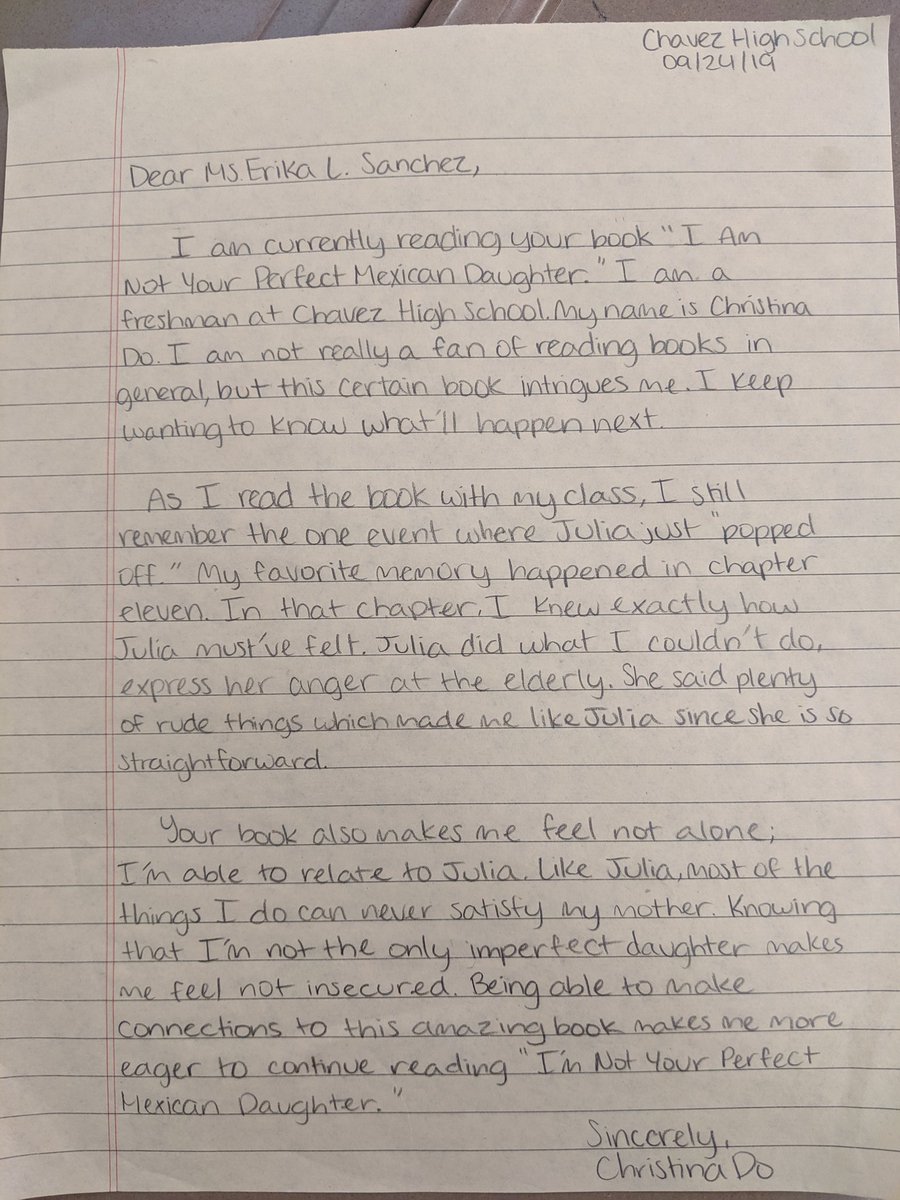 Chavez High School
09/24/19
Dear Ms. Erika L. Sanchez,
I am currently reading your book "I Am
Not Your Perfect Mexican Daughter." I am a
freshman at Chavez High School. My name is Christina
Do. I am not really a fan of reading books in
general, but this certain book intrigues me. I keep
wanting to know what'll happen next.
As I read the book with my class, I still
remember the one event where Julia just "popped
off." My favorite memory happened in chapter
eleven. In that chapter, I knew exactly how
Julia must've felt. Julia did what I couldn't do,
express her anger at the elderly. She said plenty
of rude things which made me like Julia since she is so
straightforward.
Your book also makes me feel not alone;
I'm able to relate to Julia. Like Julia, most of the
things I do can never satisfy my mother. Knowing
that I'm not the only imperfect daughter makes
me feel not insecured. Being able to make
connections to this amazing book makes me more
eager to continue reading "I'm Not Your Perfect
Mexican Daughter."
Sincerely,
Christina Do